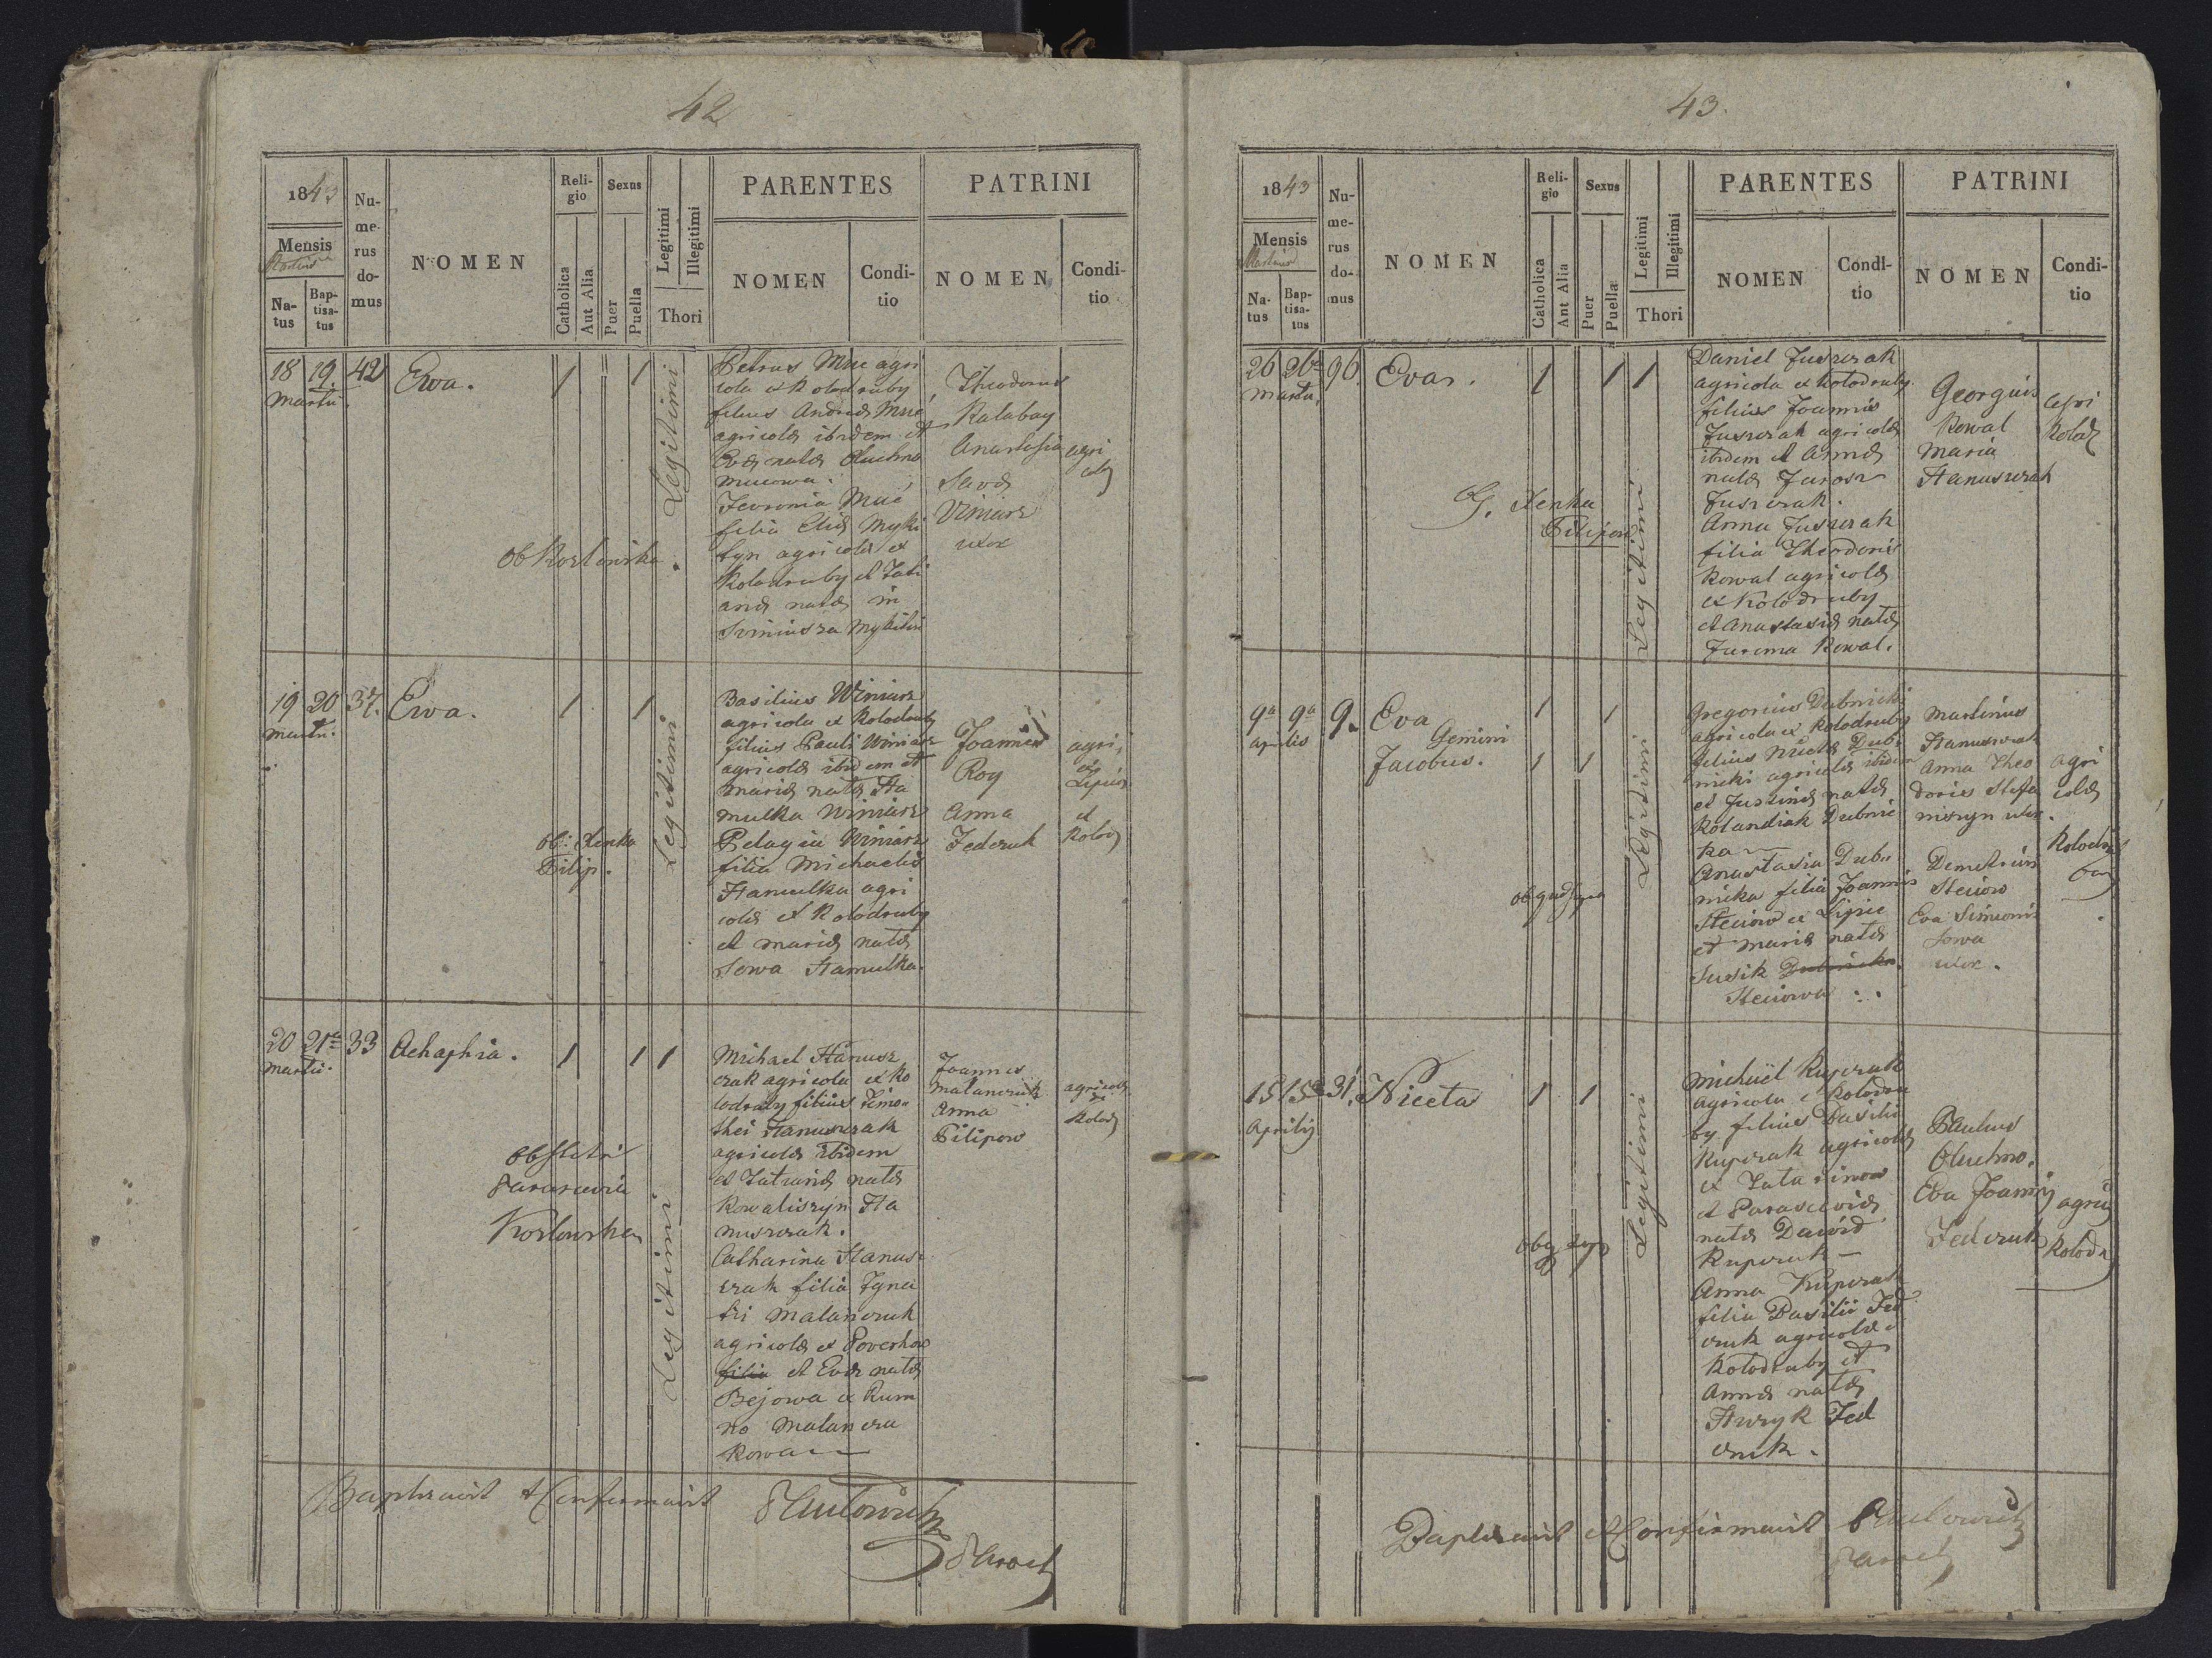 42
1843
Mensis
Martius
Na-
tus
Bap-
tisa-
tus
Nu-
me-
rus
do-
mus
NOMEN
Reli-
gio
Catholica
Aut Alia
Sexus
Puer
Puella
Legitimi
Illegitimi
Thori
PARENTES
NOMEN
Condi-
tio
PATRINI
NOMEN
Condi-
tio
18 19 42 Ewa. 1 1
Martii.
Legitimi
Petrus Muc agri
cola ex Kolodruby
filius Andreæ Muc
agricolæ ibidem et
Evæ natæ Oluchno
Mucowa.
Fevronia Muc
filia Eliæ Myki
tyn agricolæ ex
Kolodruby et Tati
anæ natæ in
Mykityn
Theodorus
Kalabay
Anastasia
Savæ
Viniarz
uxor
agri
colæ
Ob Kozlowska.
19 20 37. Ewa. 1 1
Martii.
Legitimi
Basilius Winiarz
agricola ex Kolodruby
filius Pauli Winiarz
agricolæ ibidem et
Mariæ natæ Ha
mulka Winiarz
Pelagia Winiarz
filia Michaelis
Hamulka agri
colæ ex Kolodruby
et Mariæ natæ
Sowa Hamulka.
Joannes
Roy
Anna
Federuk
agri.
ex
Lipice
et
Kolod
Ob: Xenka
Filip.
20 21a 33 Achaphia. 1 1 1
Martii.
Legitimi
Michael Hanusz
czak agricola ex Ko
lodruby filius Timo-
thei Hanusczak
agricolæ ibidem
et Tatianæ natæ
Kowaliszyn Ha
nusczak.
Catharina Hanus-
czak filia Igna
tii Malanczuk
agricolæ ex Powerhow
filia et Evæ natæ
Bejowa ex Rum
no Malancza
kowa
Joannes
Malanczuk
Anna
Filipow
agricolæ
ex
Kolod
Obstetri
Parascevia
Kozlowska
Baptisavit et Confirmavit
Paroch
43.
1843
Mensis
Martius
Na-
tus
Bap-
tisa-
tus
Nu-
me-
rus
do-
mus
NOMEN
Reli-
gio
Catholica
Aut Alia
Sexus
Puer
Puella
Legitimi
Illegitimi
Thori
PARENTES
NOMEN
Condi-
tio
PATRINI
NOMEN
Condi-
tio
26 26a 96. Eva. 1 1 1
Martii.
Legitimi
Daniel Juszczak
agricola ex Kolodruby.
filius Joannis
Juszczak agricolæ
ibidem et Annæ
natæ Jarosz
Juszczak.
Anna Juszczak
filia Theodoris
Kowal agricolæ
ex Kolodruby
et Anastasiæ natæ
Kowal.
Georgius
Kowal
Maria
Hanusczak
agri
Kolod
Xenka
Filipow
9a 9a 9. Eva 1 1
Aprilis
Gemini
Jacobus. 1 1
Legitimi
Gregorius Dubnicki
agricola ex Kolodruby
filius Nicetæ Dub-
nicki agricolæ ibidem
et Justinæ natæ
Kolandiak Dubnic
ka
Anastasia Dub-
nicka filia Joannis
Steciow ex Lipice
et Mariæ natæ
Susik Dubnicka
Steciowa
Martinus
Hanusczak
Anna Theo
doris Stefa
niszyn uxor.
Demetrius
Steciow
Eva Simeonis
Sowa
uxor.
agri
colæ
15 15a 31. Niceta 1 1
Aprilis
Legitimi
Michael Kupczak
agricola ex Kolodru
by filius Basilii
Kupczak agricolæ
ex Tatarinow
et Parasceviæ
natæ Dawid
Kupczak
Anna Kupczak
filia Basilii Fed
czuk agricolæ ex
Kolodruby et
Annæ natæ
Hwryk Fed
czuk.
Paulus
Oluchno.
Eva Joannis
Fedczuk
agric
Kolodr
Baptisavit et Confirmavit
Paroch